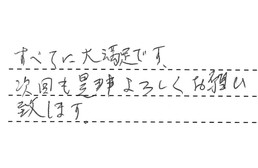 すべてに大満足です。
次回も是非よろしくお願い
致します。